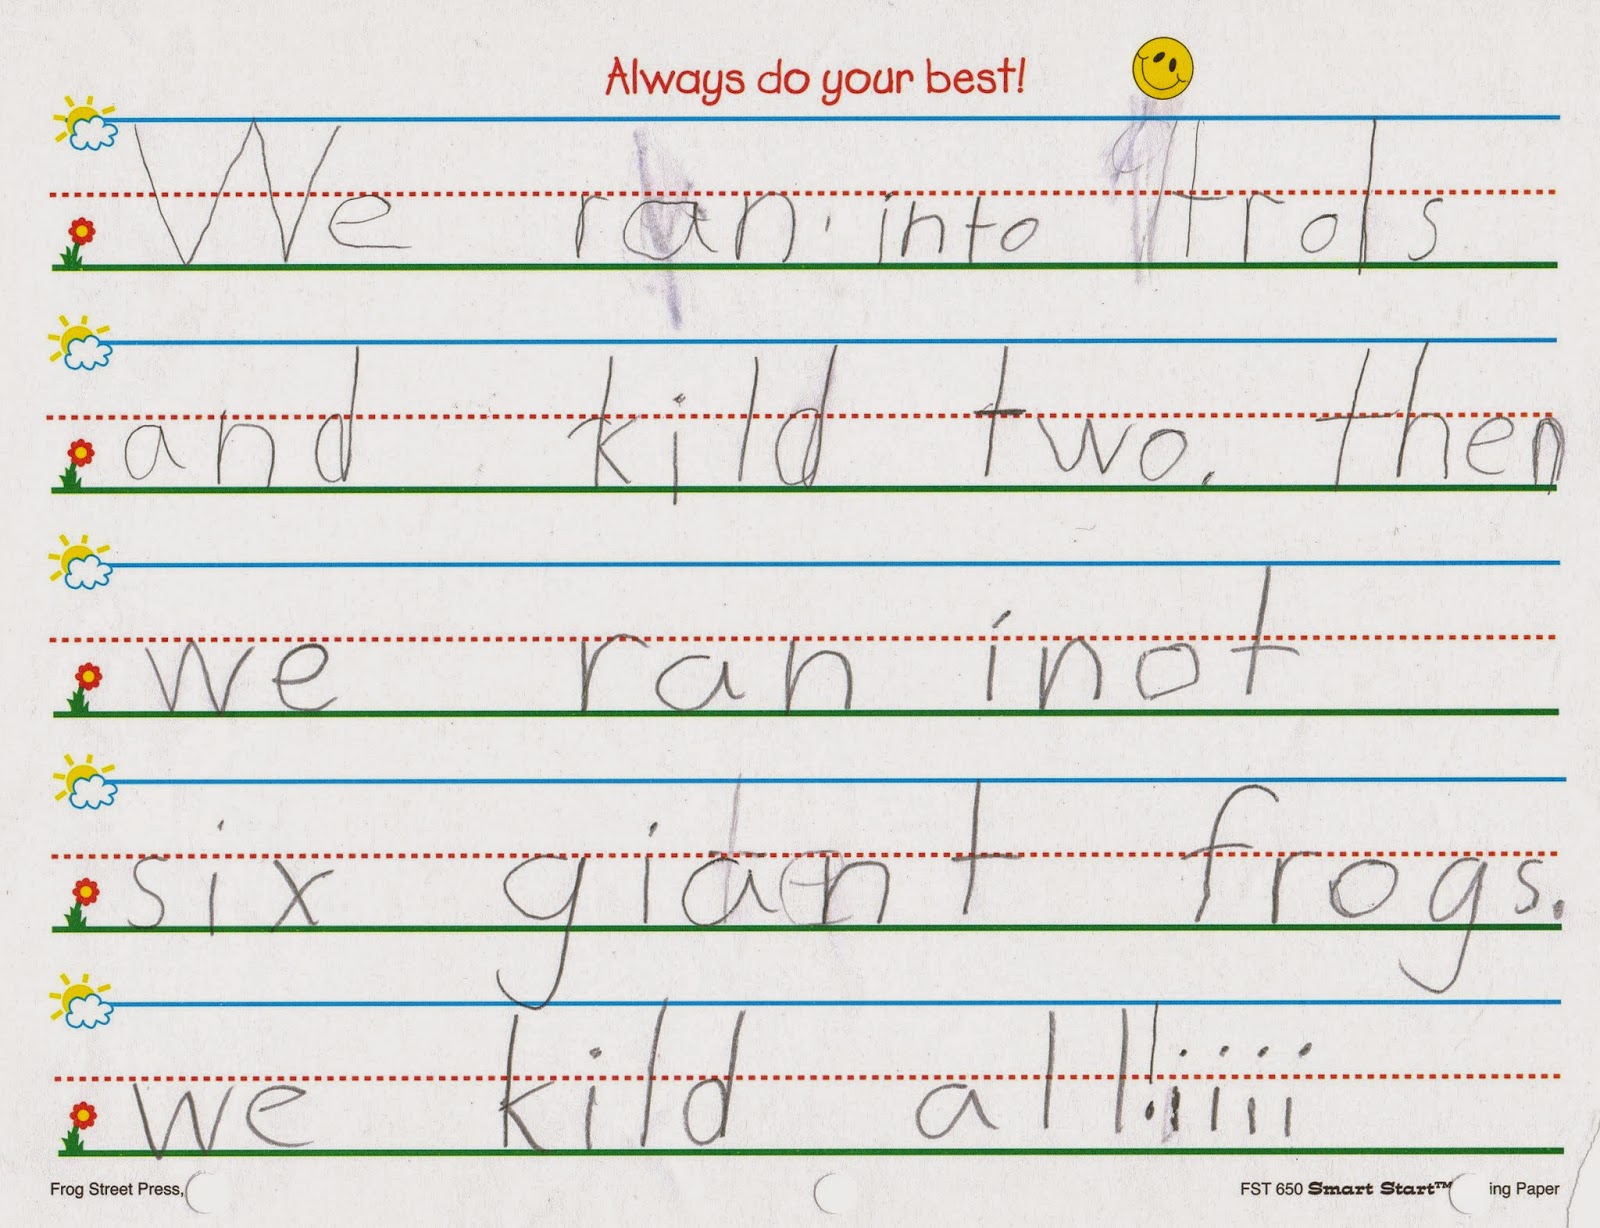 Always do your best!
We ran. into trols
and kild two. then
we ran inot
six giant frogs.
we kild all!iiii
Frog Street Press,
FST 650 Smart Start™ ing Paper